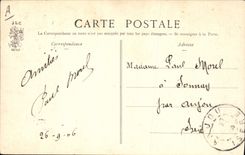 A
J.L.C
CARTE POSTALE
La Correspondance au recto n'est pas acceptée par tous les pays étrangers. — Se renseigner à la Poste.
Correspondance
Adresse
Amitiés
Paul Morel
26-9-06
Madame Paul Morel
à Sonnay
par Anjou
Isère